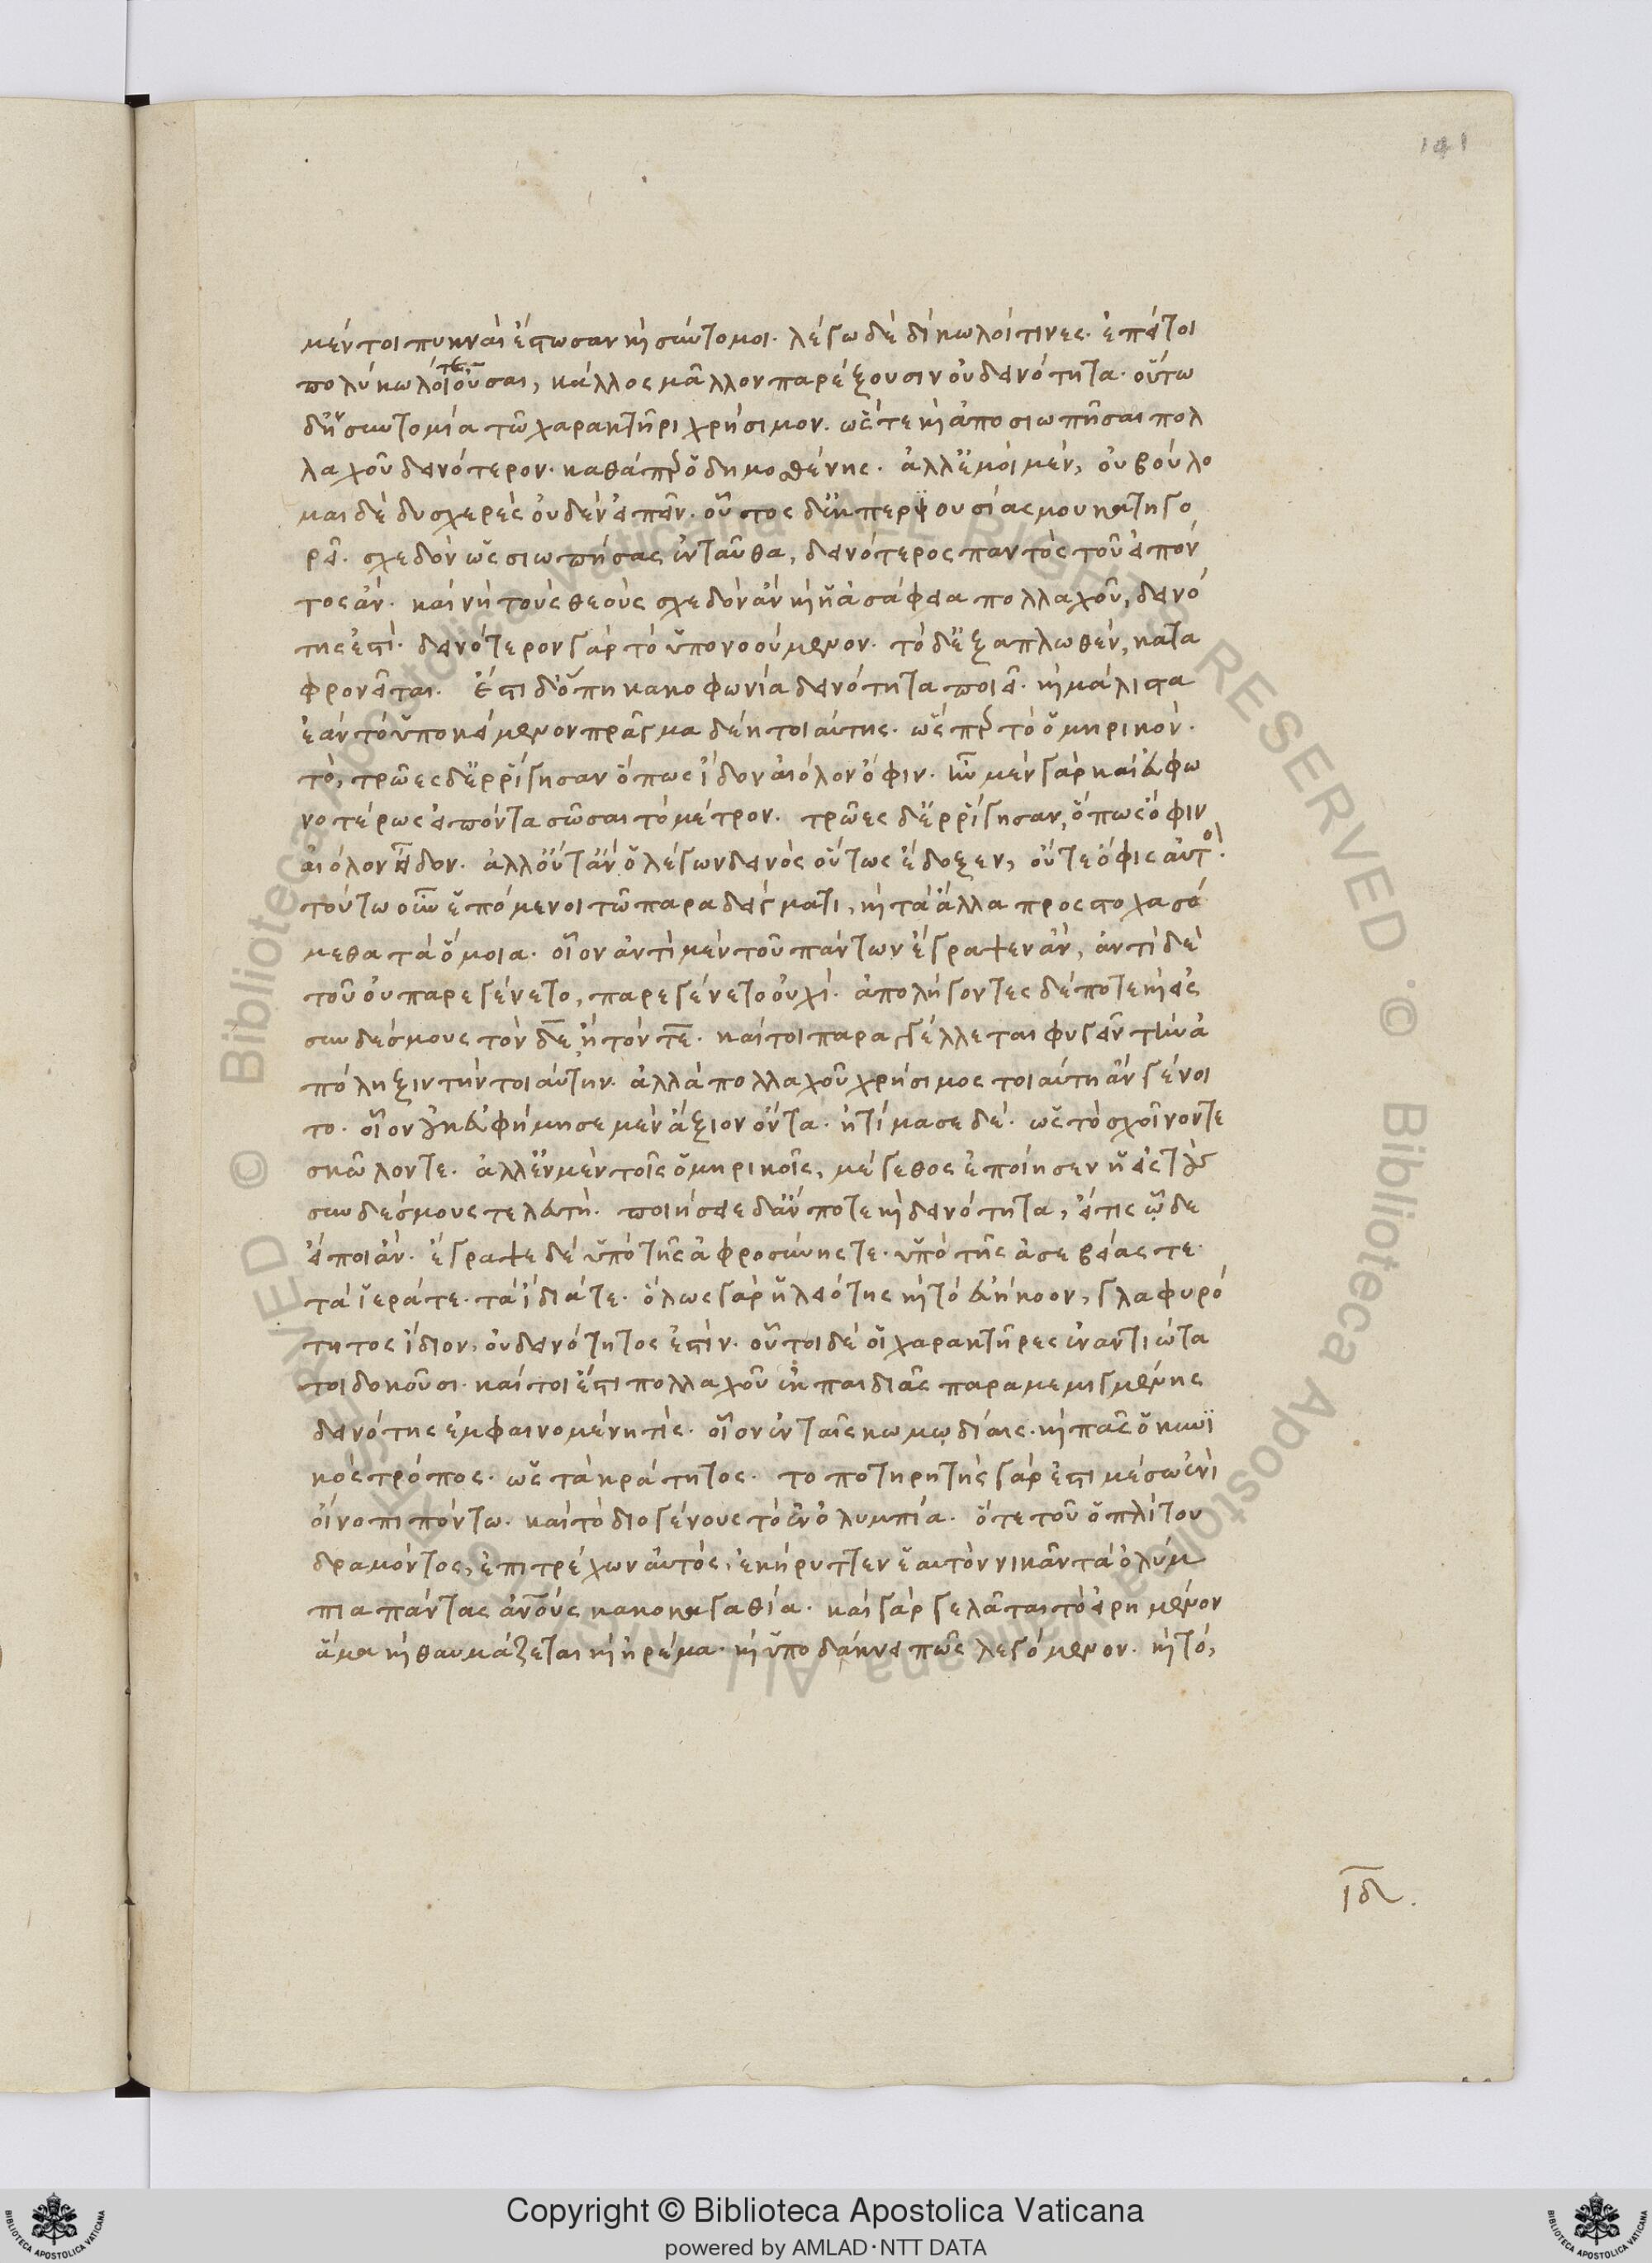 141
μέντοι πυκναὶ ἔστωσαν καὶ σύντομοι. λέγω δὲ δίκωλοί τινες. ἐπεί τοι
πολύκωλοί τε οὖσαι, κάλλος μᾶλλον παρέξουσιν οὐ δεινότητα. οὕτω
δ' ἡ συντομία τῶ χαρακτῆρι χρήσιμον. ὥστε καὶ ἀποσιωπῆσαι πολ
λαχοῦ δεινότερον. καθάπερ ὁ δημοσθένης. ἀλλ' ἐμοὶ μέν, οὐ βούλο
μαι δὲ δυσχερὲς οὐδὲν εἰπεῖν. οὗτος δ' ἐκ περιουσίας μου κατηγο
ρεῖ. σχεδὸν ὡς σιωπήσας ἐνταῦθα, δεινότερος παντὸς τοῦ εἰπόν
τος ἄν. καὶ νὴ τοὺς θεοὺς σχεδὸν ἂν καὶ ἡ ἀσάφεια πολλαχοῦ, δεινό
της ἐστί. δεινότερον γὰρ τὸ ὑπονοούμενον. τὸ δ' ἐξαπλωθὲν, κατα
φρονεῖται. ἔστι δ' ὅπη κακοφωνία δεινότητα ποιεῖ. καὶ μάλιστα
ἐὰν τὸ ὑποκείμενον πρᾶγμα δέη τοιαύτης. ὥσπερ τὸ ὁμηρικὸν.
τὸ, τρῶες δ' ἐρρίγησαν ὅπως ἴδον αἰόλον ὄφιν. ἦν μὲν γὰρ καὶ εὐφω
νοτέρως εἰπόντα σῶσαι τὸ μέτρον. τρῶες δ' ἐρρίγησαν, ὅπως ὄφιν
αἰόλον εἶδον. ἀλλ' οὔτ' ἂν ὁ λέγων δεινὸς οὕτως ἔδοξεν, οὔτε ὄφις αὐτό.
τούτω οὖν ἑπόμενοι τῶ παραδείγματι, καὶ τὰ ἄλλα προστοχασό
μεθα τὰ ὅμοια. οἷον ἀντὶ μὲν τοῦ πάντων ἔγραψεν ἂν, ἀντὶ δὲ
τοῦ οὐ παρεγένετο, παρεγένετο οὐχί. ἀπολήγοντες δέ ποτε καὶ εἰς
συνδέσμους τὸν δε, ἢ τὸν τε. καίτοι παραγγέλλεται φυγεῖν τὴν ἀ
πόληξιν τὴν τοιαύτην. ἀλλὰ πολλαχοῦ χρήσιμος τοιαύτη ἂν γένοι
το. οἷον οὐκ εὐφήμησε μὲν ἄξιον ὄντα. ἠτίμασε δέ. ὡς τὸ σχοῖνόν τε
σκῶλόν τε. ἀλλ' ἐν μὲν τοῖς ὁμηρικοῖς, μέγεθος ἐποίησεν ἡ εἰς τοὺς
συνδέσμους τελευτή. ποιήσειε δ' ἄν ποτε καὶ δεινότητα, εἴ τις ὧδε
εἴποι ἄν. ἔγραψε δὲ ὑπὸ τῆς ἀφροσύνης τε. ὑπὸ τῆς ἀσεβείας τε.
τὰ ἱερά τε. τὰ ἴδιά τε. ὅλως γὰρ ἡ λειότης καὶ τὸ εὐήκοον, γλαφυρό
τητος ἴδιον, οὐ δεινότητός ἐστιν. οὗτοι δὲ οἱ χαρακτῆρες ἐναντιώτα
τοι δοκοῦσι. καίτοι ἔστι πολλαχοῦ ἐκ παιδιᾶς παραμεμιγμένης
δεινότης ἐμφαινομένη τις. οἷον ἐν ταῖς κωμῳδίαις. καὶ πᾶς ὁ κυνϊ
κὸς τρόπος. ὡς τὰ κράτητος. το ποτηρητὴς γάρ ἐστι μέσω ἐνὶ
οἴνοπι πόντω. καὶ τὸ διογένους τὸ ἐν ὀλυμπία. ὅτε τοῦ ὁπλίτου
δραμόντος, ἐπιτρέχων αὐτός, ἐκήρυττεν ἑαυτὸν νικᾶν τὰ ὀλύμ
πια πάντας ἀνους κακοκαγαθία. καὶ γὰρ γελᾶται τὸ εἰρημένον
ἅμα καὶ θαυμάζεται καὶ ἠρέμα. καὶ ὑποδάκνει πως λεγόμενον. καὶ τό,
ιδ.
Copyright © Biblioteca Apostolica Vaticana
powered by AMLAD·NTT DATA